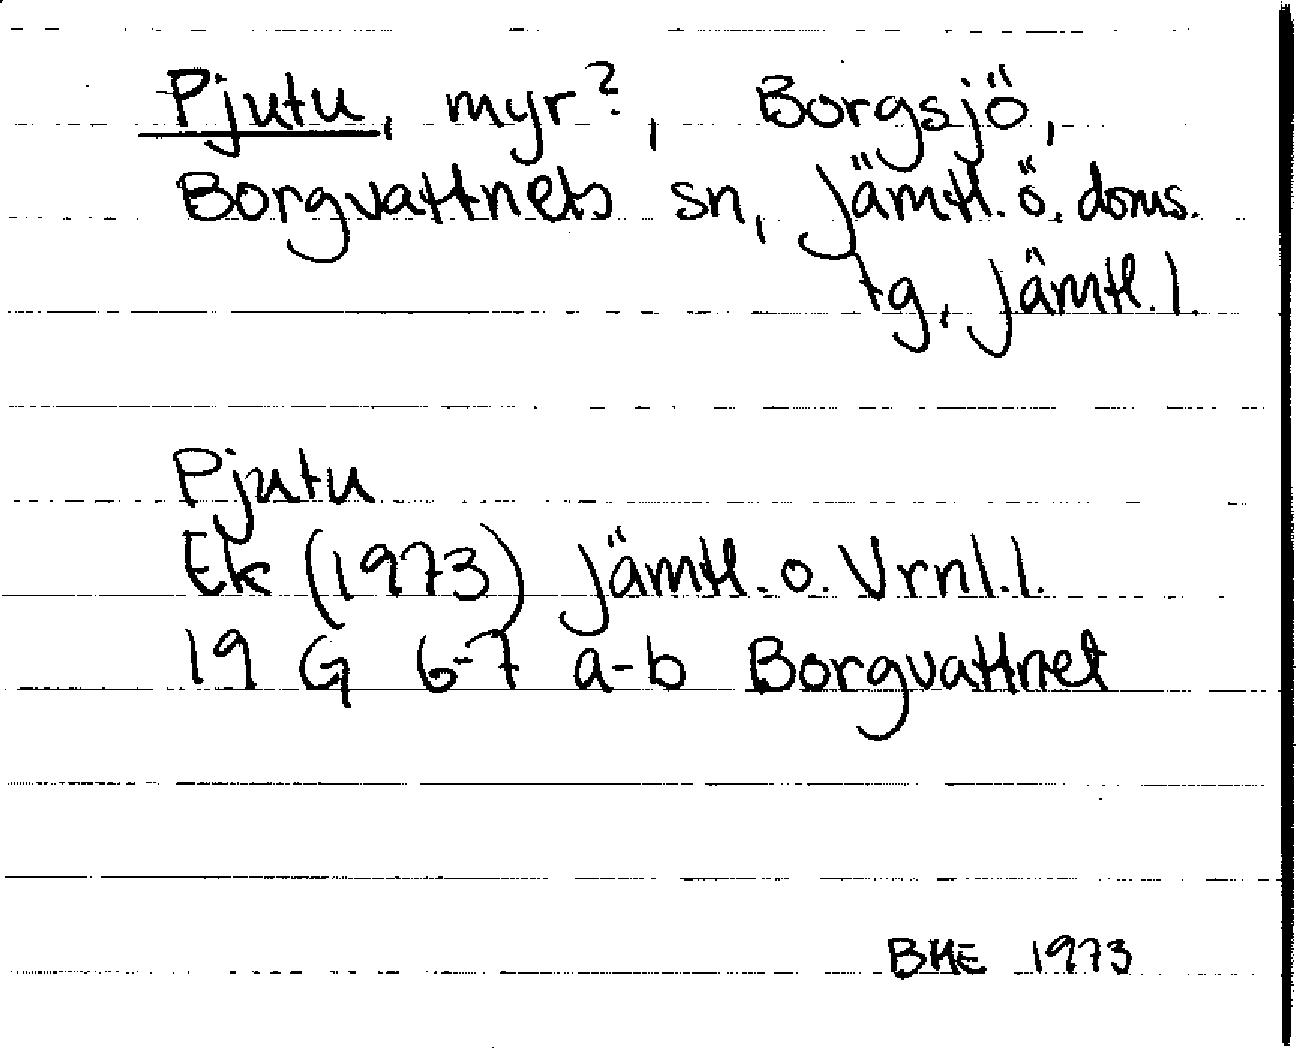 Pjutu, myr?, Borgsjö,
Borgvattnets sn, Jämtl. ö. doms.
tg, Jämtl. l.
Pjutu
Ek (1973) Jämtl. o. Vrnl. l.
19 G 6-7 a-b Borgvattnet
BME 1973